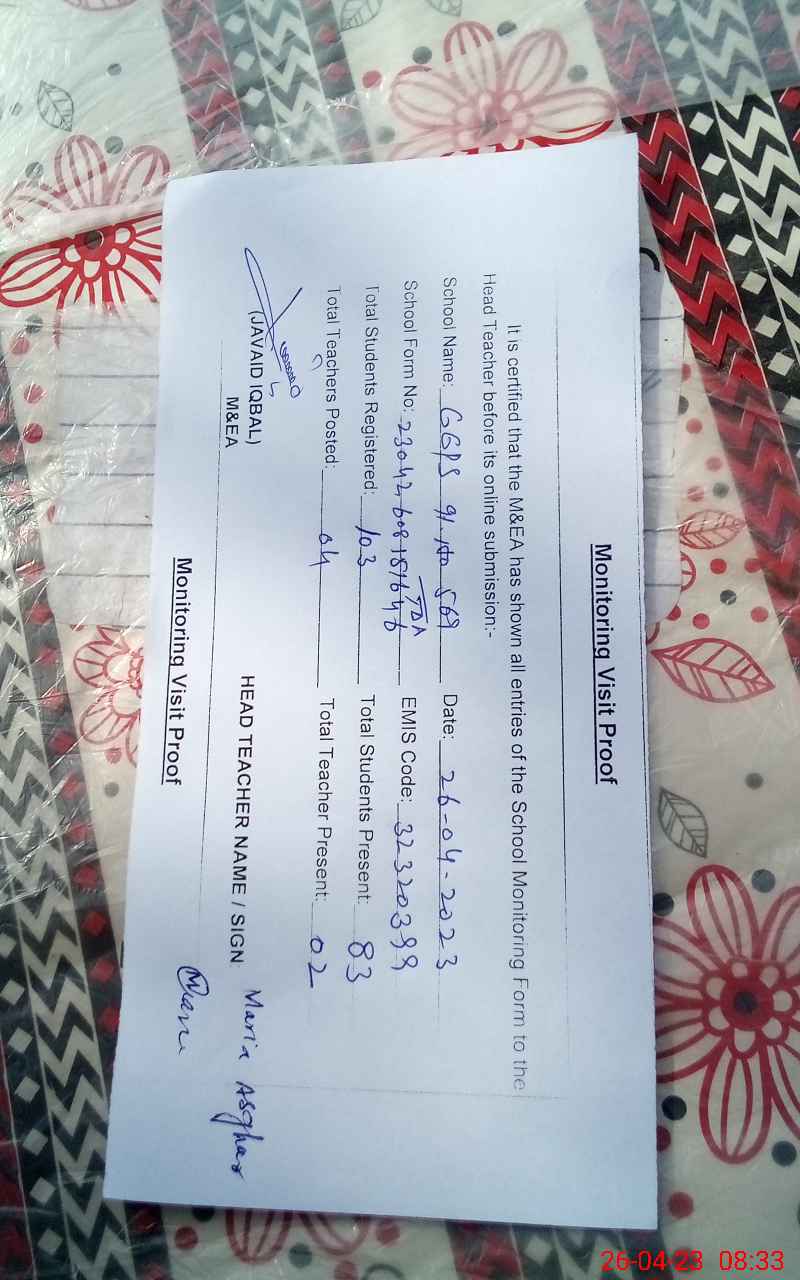 Monitoring Visit Proof
It is certified that the M&EA has shown all entries of the School Monitoring Form to the
Head Teacher before its online submission:-
School Name: GGPS 91 No 569 Date: 26-04-2023
School Form No: TDA EMIS Code: 32320399
Total Students Registered: 103 Total Students Present: 83
Total Teachers Posted: 04 Total Teacher Present: 02
(JAVAID IQBAL)
M&EA
HEAD TEACHER NAME / SIGN Maria Asghar
Monitoring Visit Proof
26-04-23 08:33